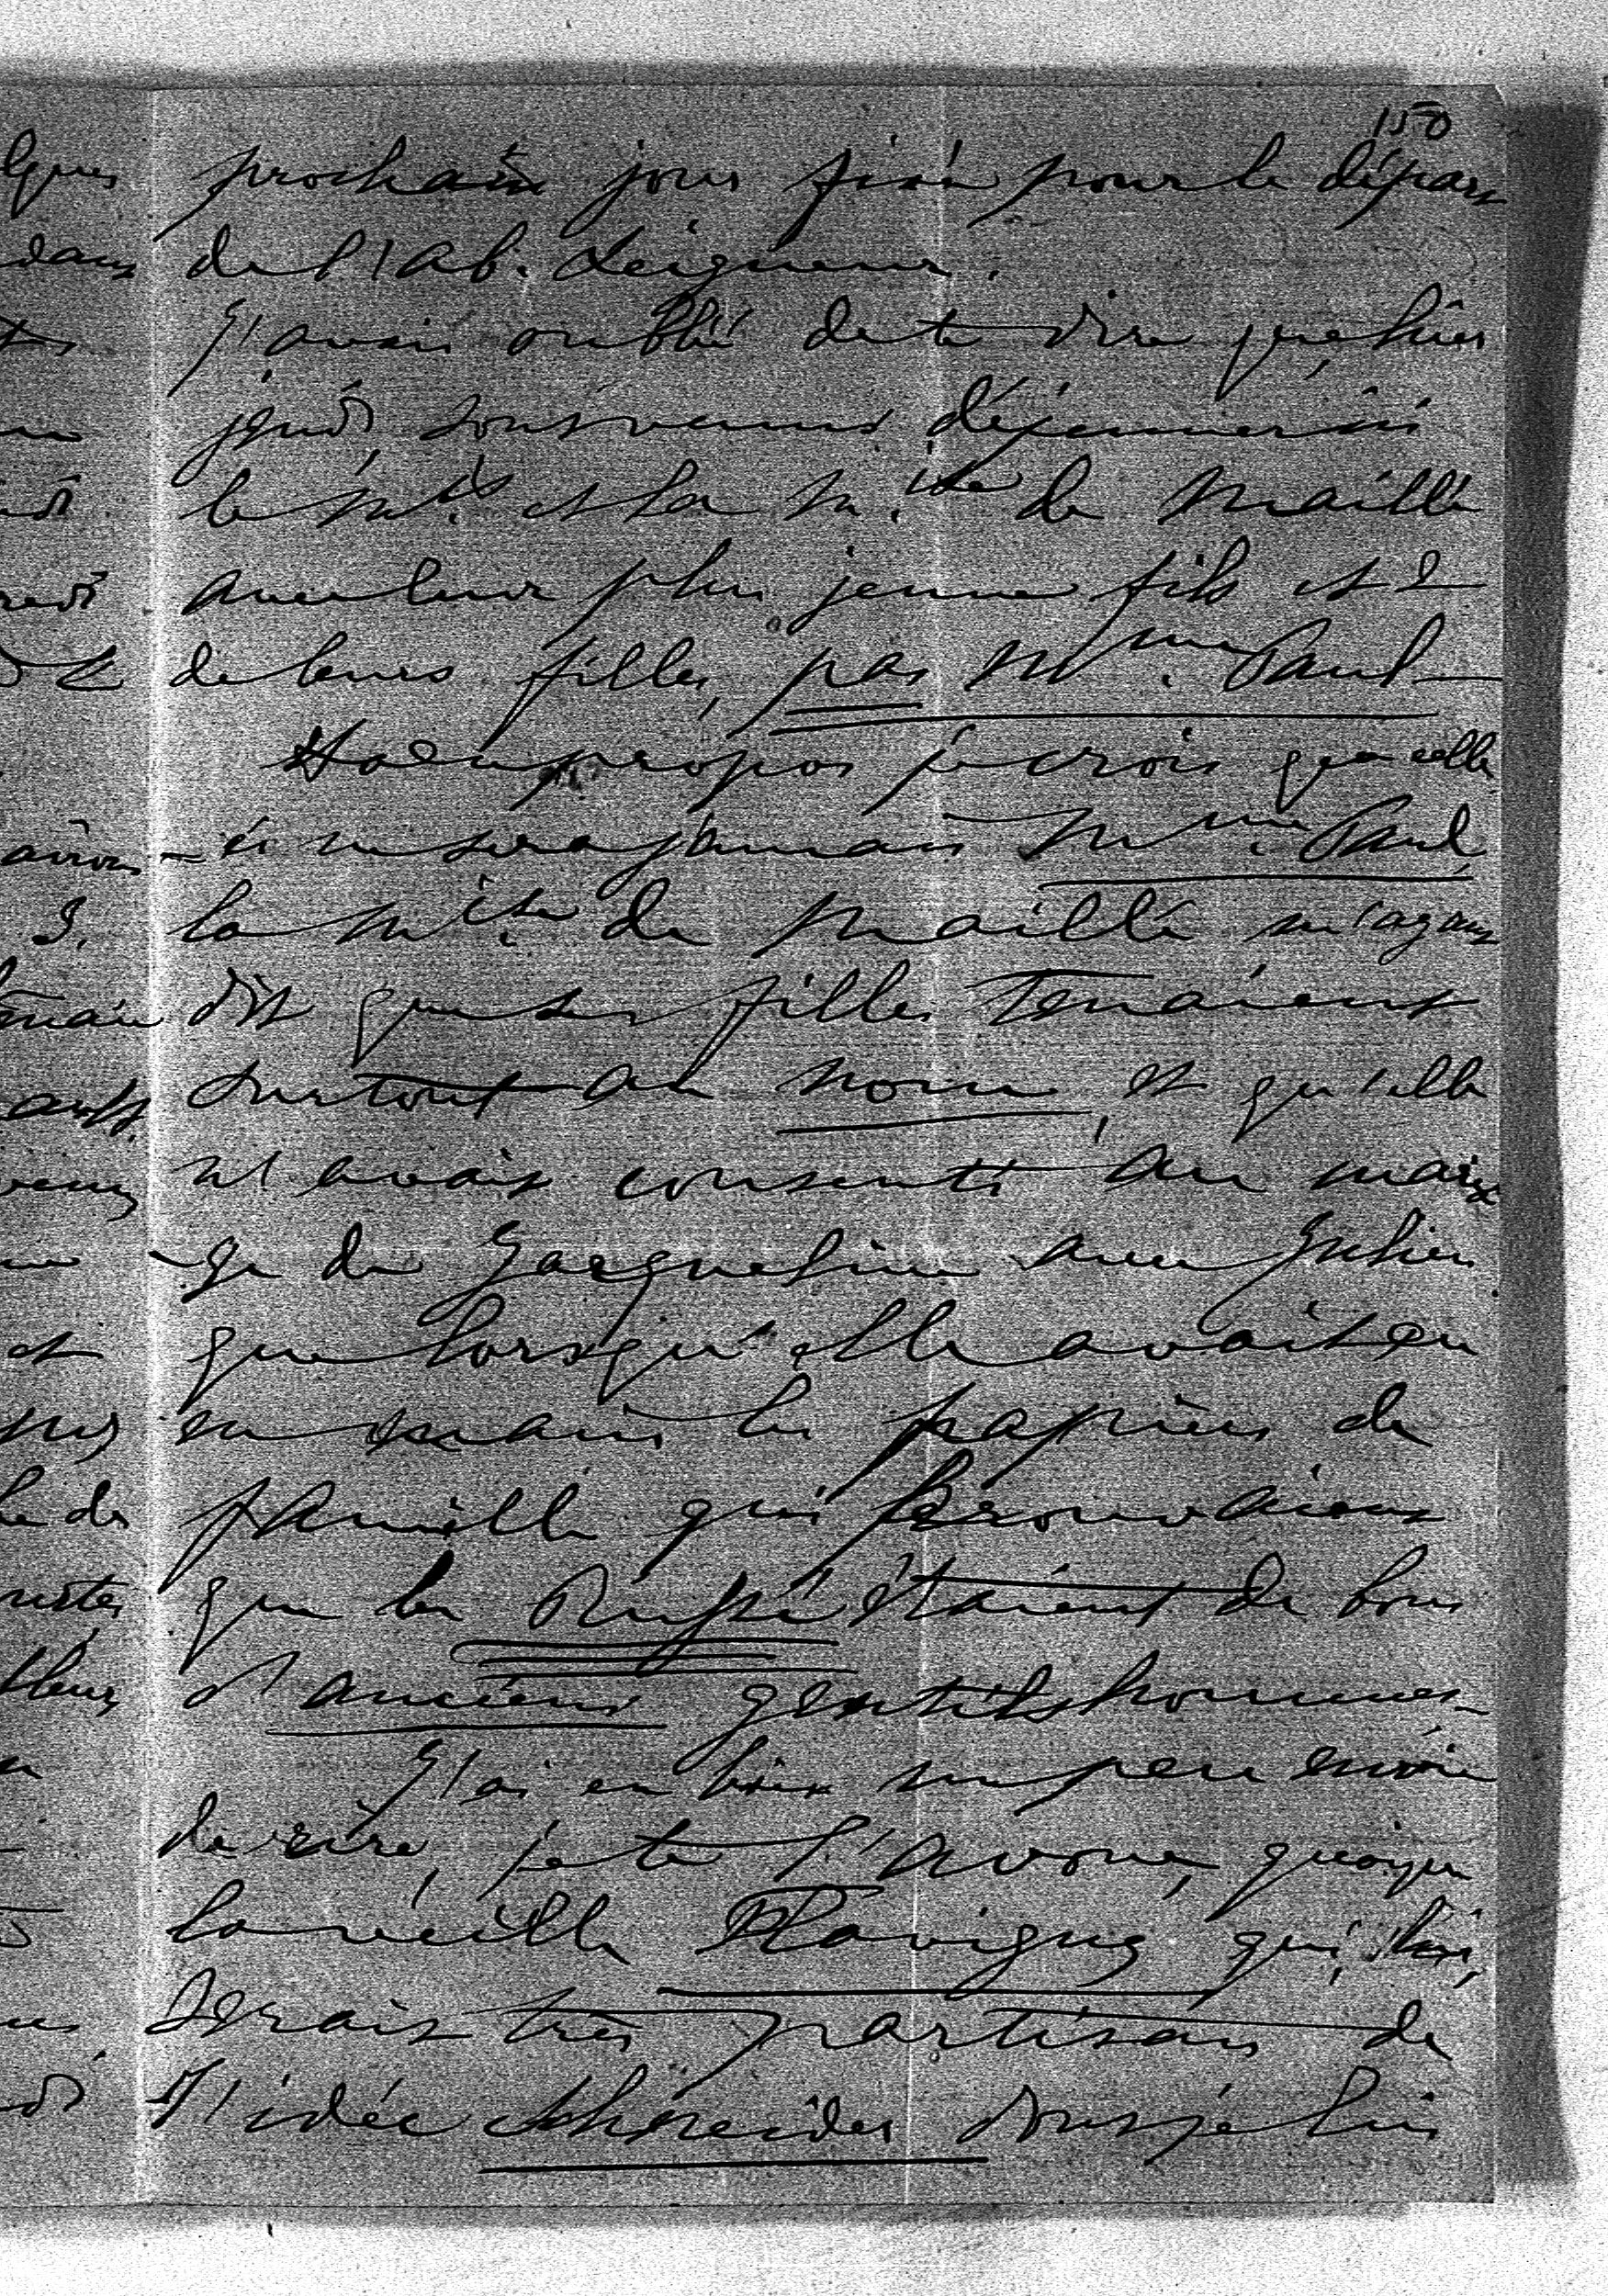 150
prochain jour fixé pour le départ
de l'Ab. Seigneur.
J'avais oublié de te dire que hier
jeudi, sont venus déjeuner ici
le M.is et la M.ise de Maillé
avec leur plus jeune fils et 2
de leurs filles, pas Mme. Paul
propos je crois que celle
-ci ne sera jamais Mme. Paul
la M.ise de Maillé m'ayant
dit que ses filles tenaient
surtout au nom, et qu'elle
n'avait consenti au maria
-ge de Jacqueline avec Julien
que lorsqu'elle avait eu
en main les papiers de
famille qui prouvaient
que les Ruffé étaient de bons
d'anciens gentilshommes
J'ai eu bien un peu envie
de rire, je te l'avoue, quoique
la vieille Flavigny qui,
serait très partisan de
l'idée Schneider dont je lui